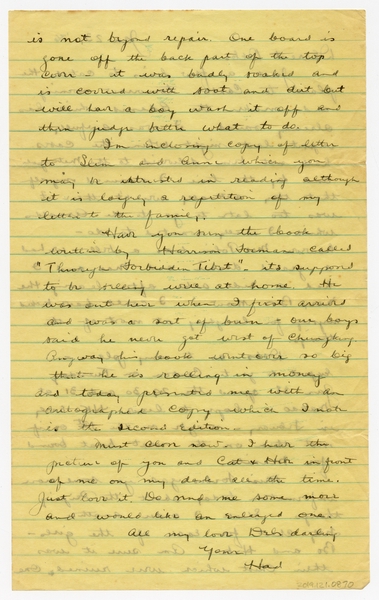 is not beyond repair. One board is
gone off the back part of the top
cover - it was badly soaked and
is covered with soot and dirt but
will have a boy wash it off and
then judge better what to do.
I'm enclosing copy of letter
to Slim and Anne which you
may be interested in reading although
it is largely a repetition of my
letter to the family.
Have you seen the book
written by Harrison Forman called
"Through Forbidden Tibet" - its supposed
to be selling well at home. He
was out here when I first arrived
and was a sort of bum - our boys
said he never got west of Chungking
Anyway his book went over so big
that he is rolling in money
and today presented me with an
autographed copy which I note
is the second edition.
Must close now. I have the
picture of you and Cat & in front
of me on my desk all the time.
Just love it. Do send me some more
and would like an enlarged one.
All my love darling
Yours
Had
2009.121.0970